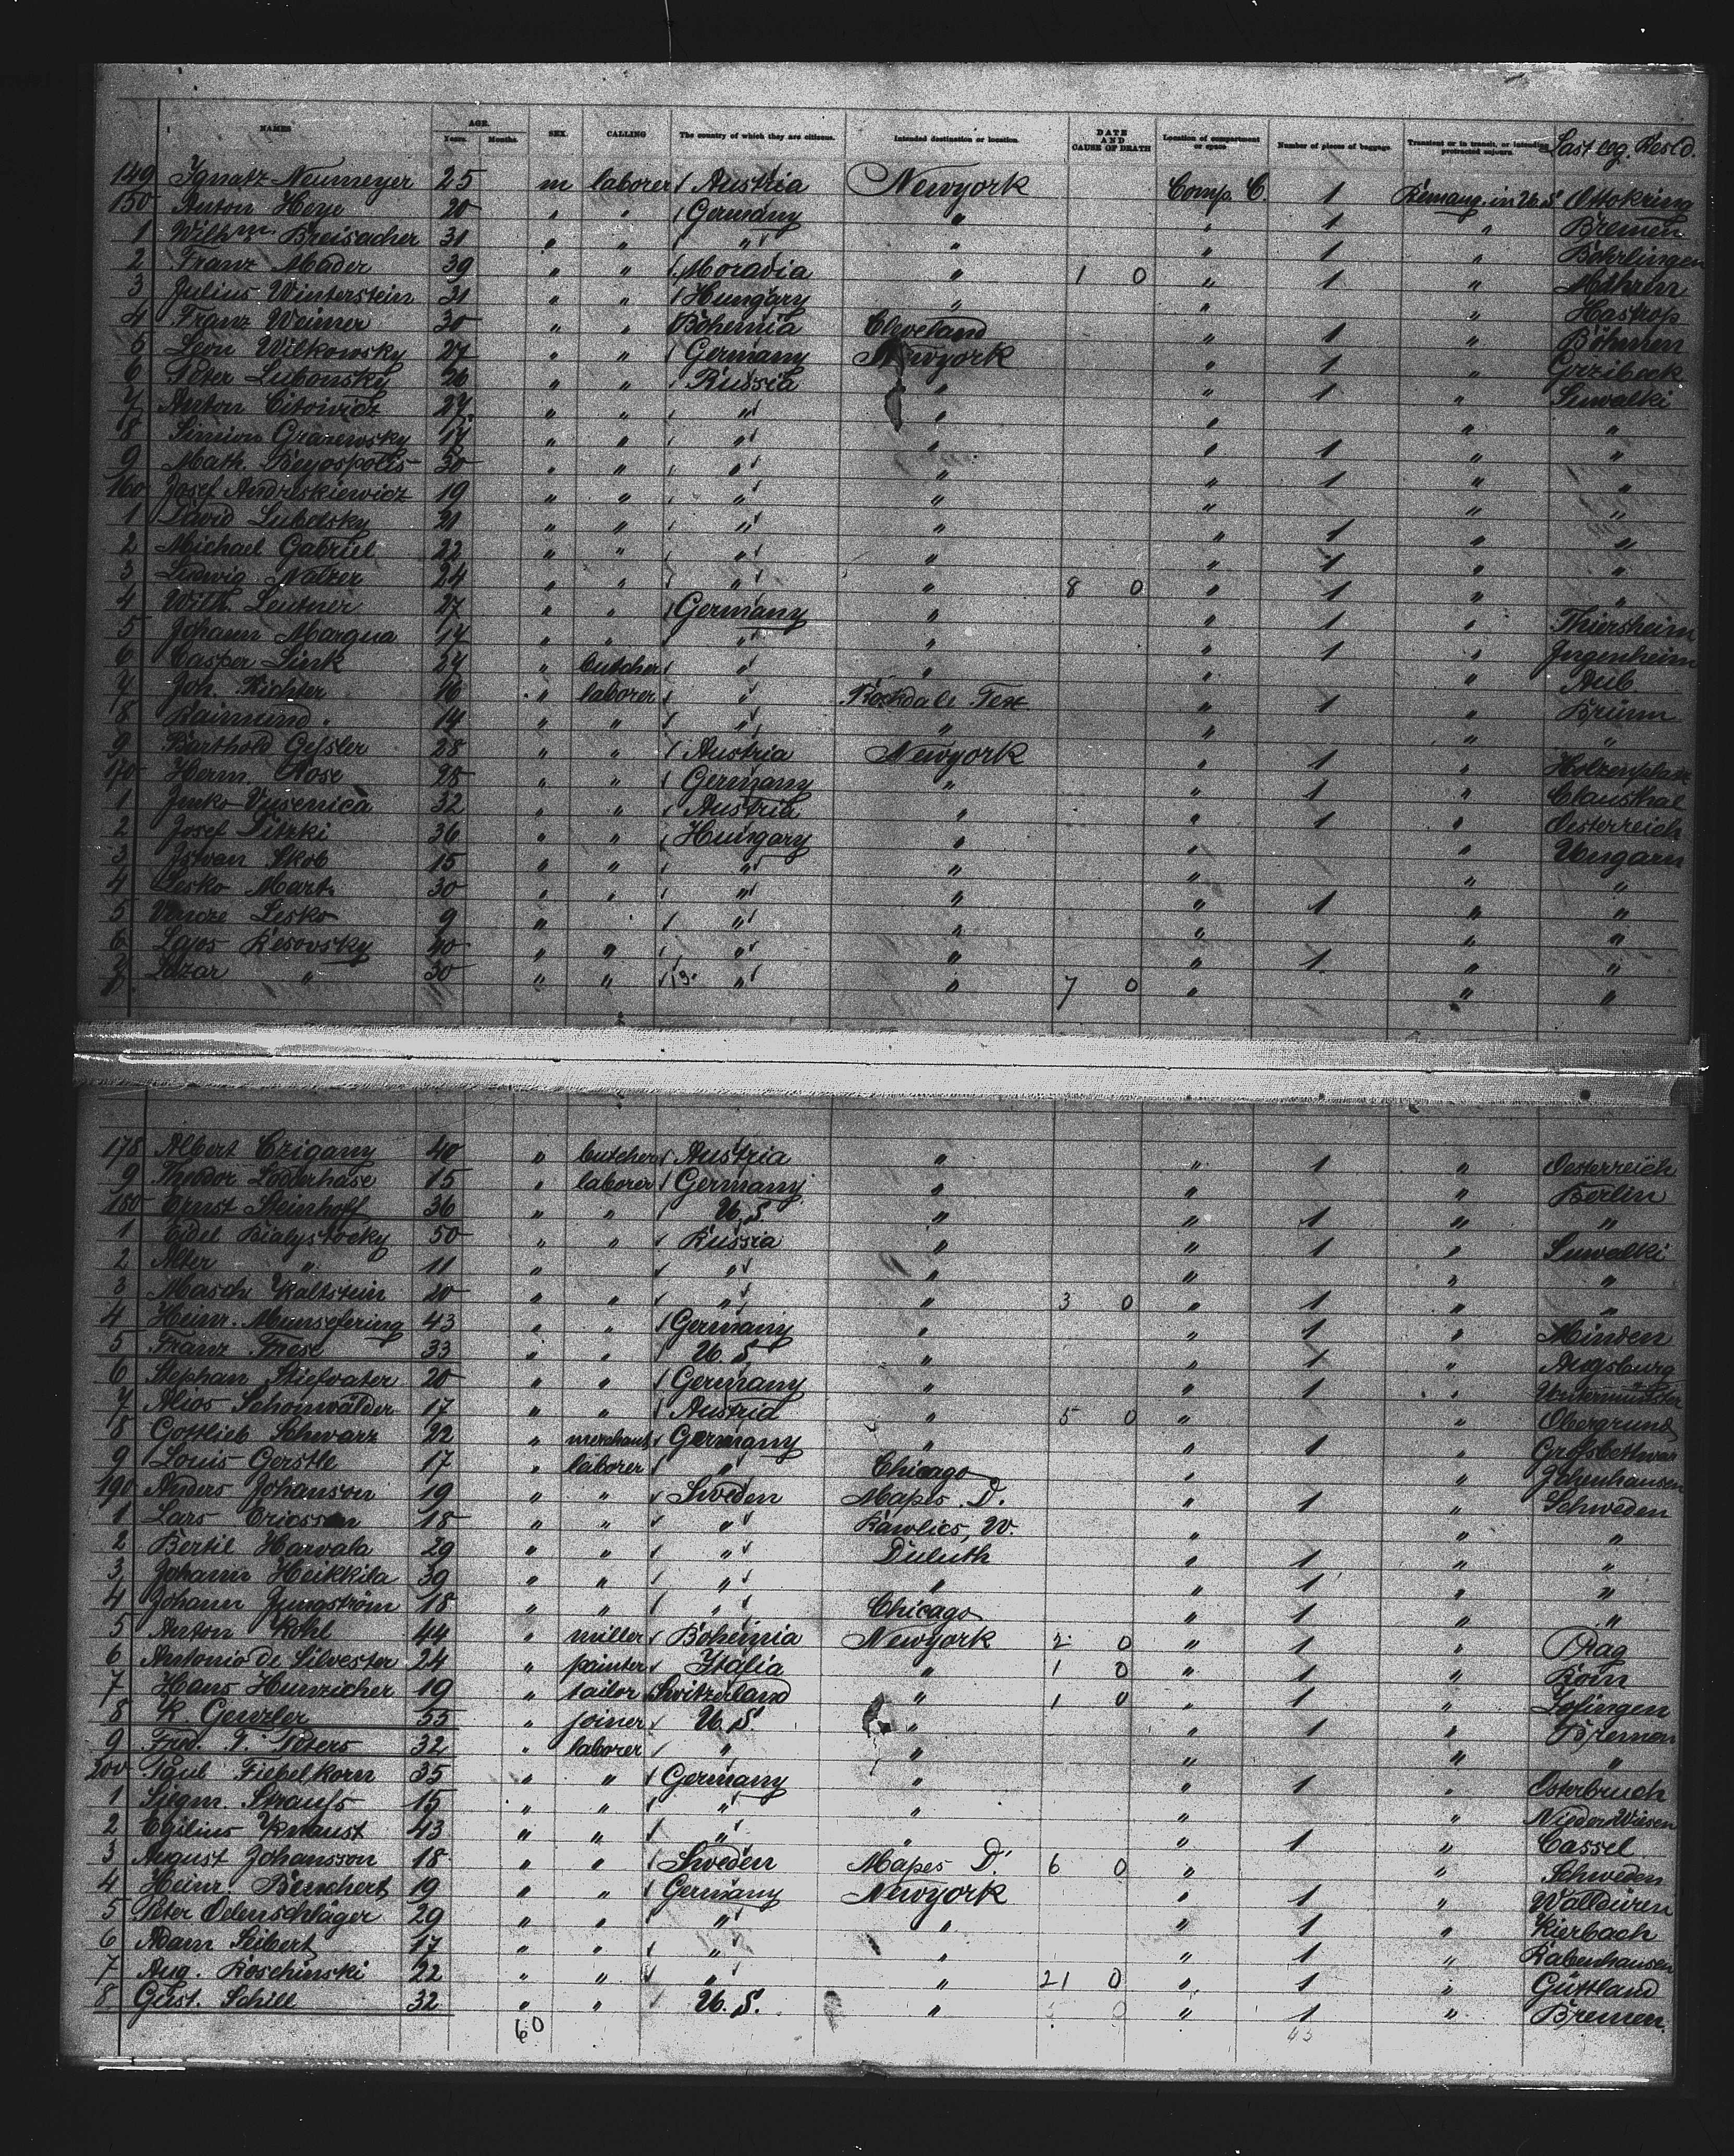 NAMES AGE. Years. Months. SEX. CALLING The country of which they are citizens. Intended destination or location. DATE AND CAUSE OF DEATH Location of compartment or space. Number of pieces of baggage. Transient or in transit, or intending protracted sojourn. Last leg. Resid.
149 Ignatz Neumeyer 25 m laborer Austria Newyork Comp. C. 1 Remang. in U.S. Ottokring
150 Anton Heye 20 " " Germany " " 1 " Bremen
1 Wilhm Breisacher 31 " " " " " 1 " Böhrlingen
2 Franz Mader 39 " " Moravia " 1 0 " 1 " Mähren
3 Julius Winterstein 21 " " Hungary " " " Hastrop
4 Franz Weimer 30 " " Bohemia Cleveland " 1 " Böhmen
5 Leon Wilkowsky 27 " " Germany Newyork " 1 "
6 Peter Lubonsky 26 " " Russia " " 1 " Suwalki
7 Anton Citowicz 27 " " " " " " "
8 Simion Granewsky 17 " " " " " 1 " "
9 Math. 30 " " " " " 1 " "
160 Josef Andreskiewicz 19 " " " " " " "
1 David Lubelsky 21 " " " " " 1 " "
2 Michael Gabriel 22 " " " " " 1 " "
3 Ludwig Natzer 24 " " " " 8 0 " 1 " "
4 Wilh. Leutner 27 " " Germany " " 1 " Thiersheim
5 Johann Marqua 14 " " " " " 1 " Jugenheim
6 Casper Link 24 " butcher " " " " Aub
7 Joh. Richter 16 " laborer " Rockdale Tex " 1 " Brünn
8 Raimund " 14 " " " " " " "
9 Barthold Gessler 28 " " Austria Newyork " 1 " Holzenplatz
170 Herm. Rose 28 " " Germany " " 1 " Clausthal
1 Janko Vusenica 32 " " Austria " " 1 " Oesterreich
2 Josef Ditzki 36 " " Hungary " " " Ungarn
3 Istvan Skob 15 " " " " " " "
4 Lesko Mart. 30 " " " " " 1 " "
5 Vincze Lesko 9 " " " " " "
6 Lajos Resovsky 40 " " " " " 1 " "
7 Lazar " 30 " " 13. " " 7 0 " " "
178 Albert Czigany 40 " butcher Austria " " 1 " Oesterreich
9 Theodor Loderhose 15 " laborer Germany " " " Berlin
180 Ernst Steinhoff 36 " " U.S. " " 1 " "
1 Eidel Bialystocky 50 " " Russia " " 1 " Suwalki
2 Alter " 11 " " " " " "
3 Masch Kaltstein 20 " " " " 3 0 " 1 " "
4 Heinr. Munsefering 43 " " Germany " " 1 " Minden
5 Franz Frese 33 " " U.S. " " 1 " Augsburg
6 Stephan Stiefvater 20 " " Germany " " 1 " Untermünster
7 Alios Schönwälder 17 " " Austria " 5 0 " " Obergrund
8 Gottlieb Schwarz 22 " merchant Germany " " 1 " Grossbottwar
9 Louis Gerstle 17 " laborer " Chicago " " Ichenhausen
190 Anders Johanson 19 " " Sweden Mapes. D. " 1 " Schweden
1 Lars Ericsson 18 " " " Rawlics, W. " " "
2 Bertil Harvala 29 " " " Duluth " 1 " "
3 Johann Heikkila 39 " " " " " 1 " "
4 Johann Jungström 18 " " " Chicago " 1 " "
5 Anton Kohl 44 " miller Bohemia Newyork 2 0 " 1 " Prag
6 Antonio de Silvester 24 " painter Italia " 1 0 " 1 " Rom
7 Hans Hunzicher 19 " tailor Switzerland " 1 0 " 1 " Zofingen
8 K. Genzler 55 " joiner U.S. " " 1 " Bremen
9 Frd. T. Peters 32 " laborer " " " " "
200 Paul Fiebelkorn 35 " " Germany " " 1 " Osterbruch
1 Siegm. Strauss 15 " " " " " " NiederWiesen
2 Egilius Knaust 43 " " " " " 1 " Cassel
3 August Johansson 18 " " Sweden Mapes D. 6 0 " " Schweden
4 Heinr. Binschert 19 " " Germany Newyork " 1 " Walldüren
5 Peter Odenschläger 29 " " " " " 1 " Kierbach
6 Adam Seibert 17 " " " " " 1 " Rabenhausen
7 Aug. Roschinski 22 " " " " 21 0 " 1 " Güttland
8 Gust. Schill 32 " " U.S. " 0 " 1 " Bremen.
60 43